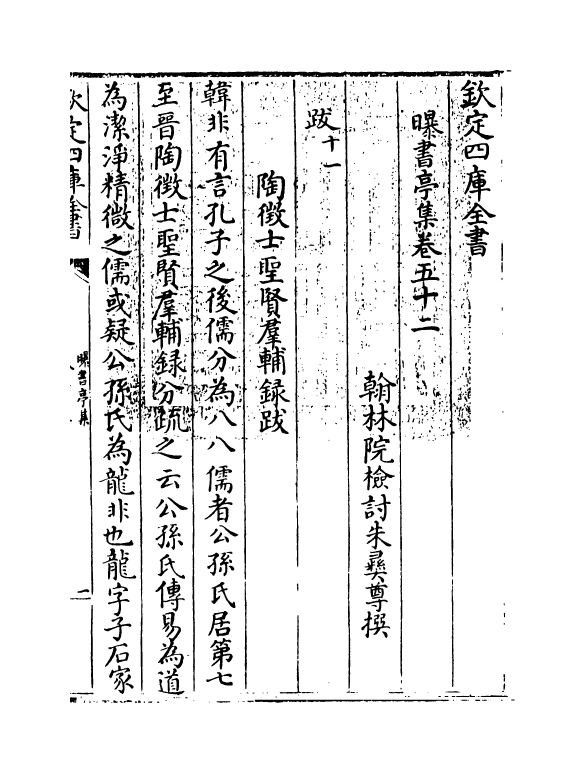 欽定四庫全書
曝書亭集卷五十二
翰林院檢討朱彞尊撰
跋十一
陶徴士聖賢羣輔録跋
韓非有言孔子之後儒分為八八儒者公孫氏居第七
至晉陶徴士聖賢羣輔録分疏之云公孫氏傳易為道
為潔淨精微之儒或疑公孫氏為龍非也龍字子石家
欽定四庫全書
曝書亭集